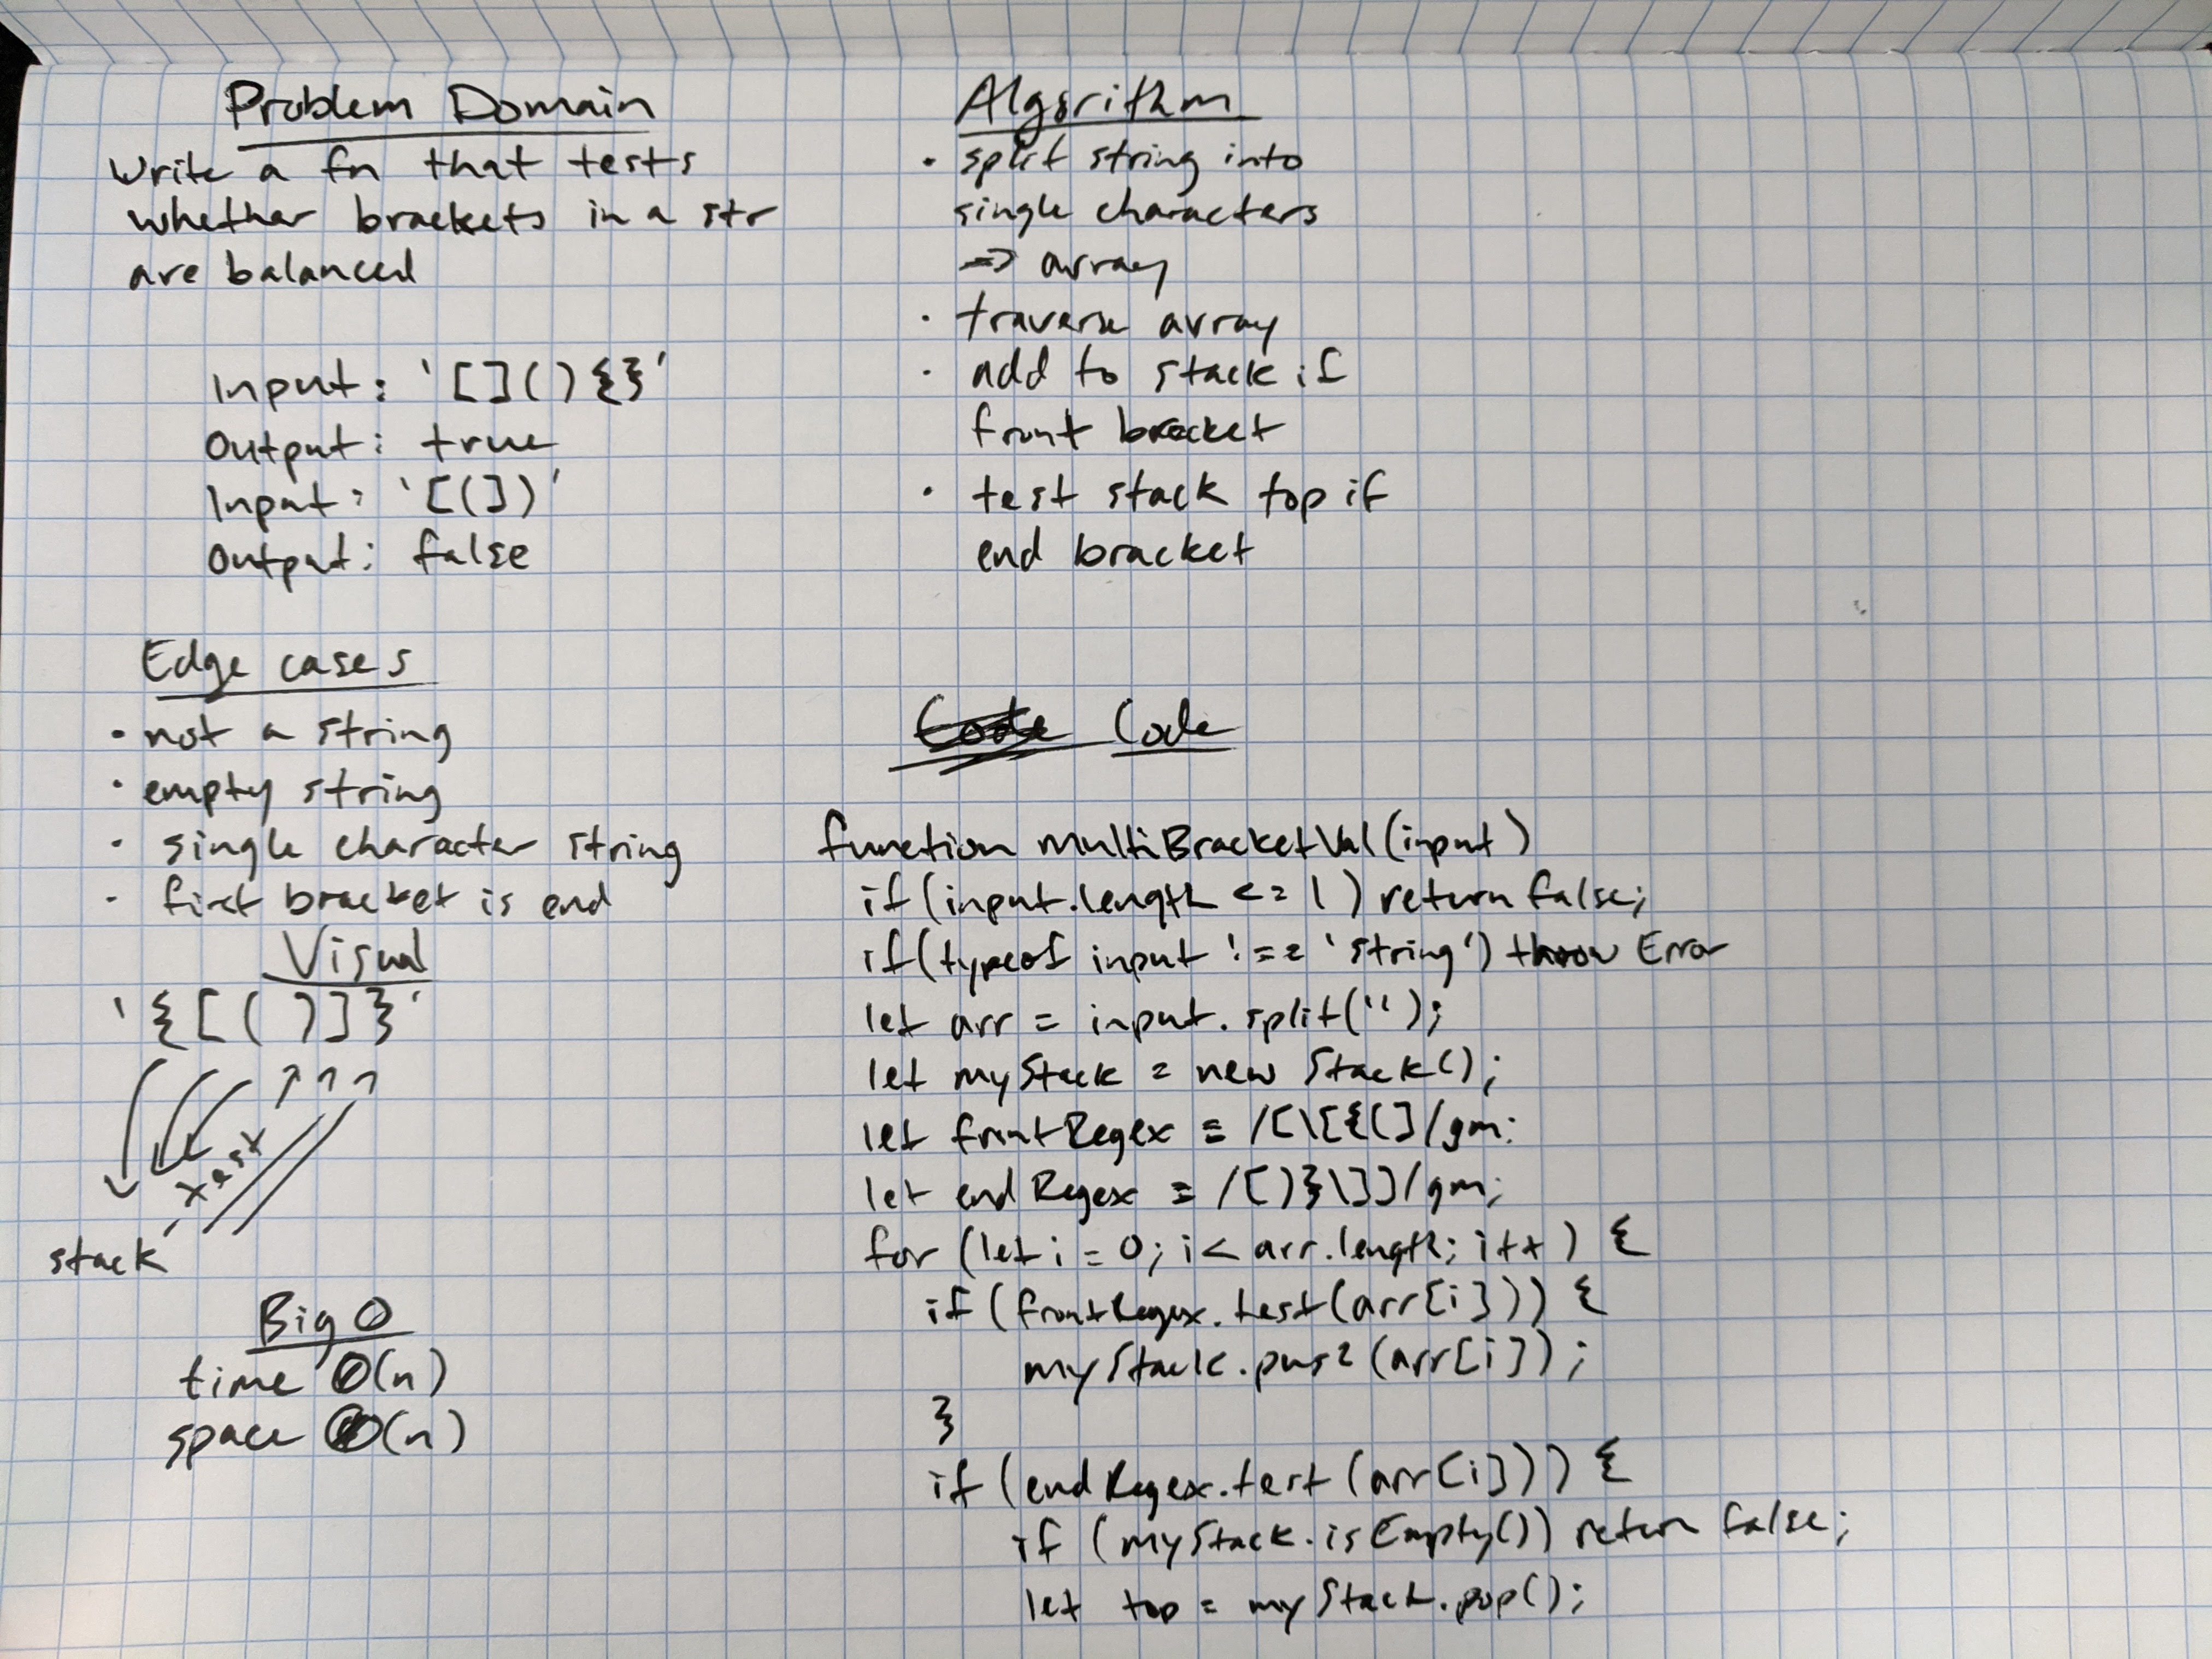 Problem Domain
Write a fn that tests
whether brackets in a str
are balanced
Input: '[](){}'
Output: true
Input: '[(])'
Output: false
Edge cases
· not a string
· empty string
· single character string
· first bracket is end
Visual
'{[()]}'
test
stack
Big O
time O(n)
space O(n)
Algorithm
· split string into
single characters
=> array
· traverse array
· add to stack if
front bracket
· test stack top if
end bracket
Code Code
function multiBracketVal(input)
if(input.length <= 1) return false;
if(typeof input !== 'string') throw Error
let arr = input.split('');
let myStack = new Stack();
let frontRegex = /[\[{(]/gm;
let endRegex = /[)}\]]/gm;
for (let i = 0; i < arr.length; i++) {
if (frontRegex.test(arr[i])) {
myStack.push(arr[i]);
}
if (endRegex.test(arr[i])) {
if (myStack.isEmpty()) return false;
let top = myStack.pop();